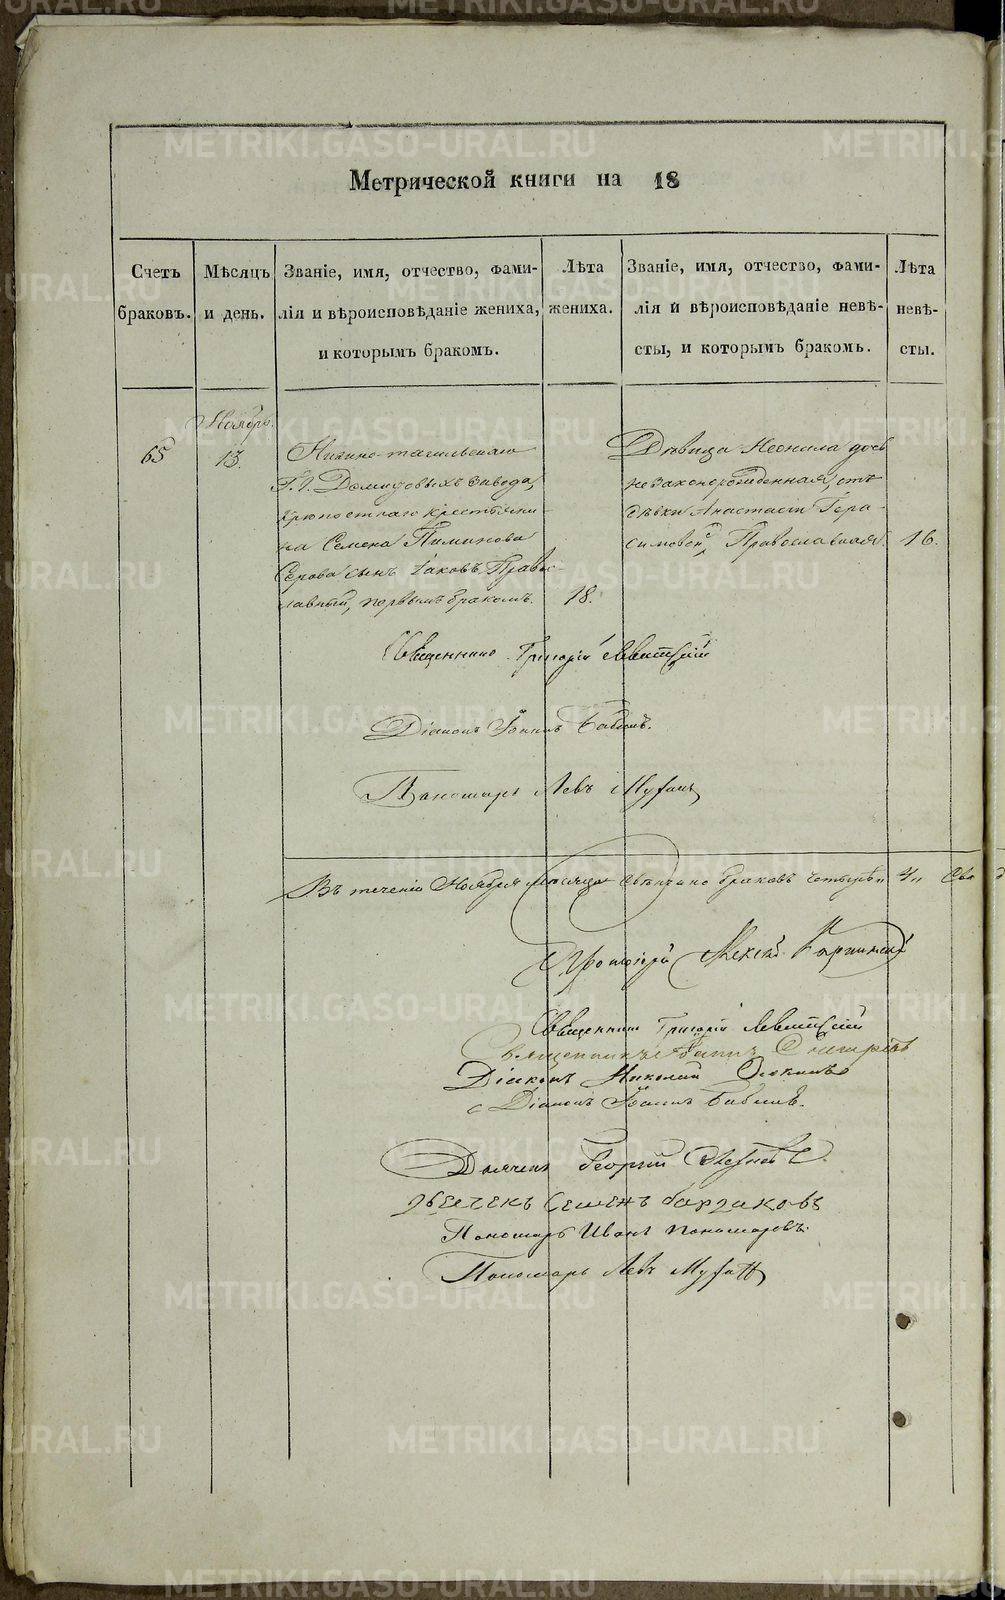 Метрической книги на 18
Счетъ браковъ.
Мѣсяцъ и день.
Званіе, имя, отчество, фами-
лія и вѣроисповѣданіе жениха,
и которымъ бракомъ.
Лѣта
жениха.
Званіе, имя, отчество, фами-
лія и вѣроисповѣданіе невѣ-
сты, и которымъ бракомъ.
Лѣта
невѣ-
сты.
Ноябрь
65
13.
Нижне-тагильскаго
Г.г. Демидовыхъ завода,
крѣпостнаго крестьяни-
на Семена Пиминова
Серова сынъ Іаковъ, Правос-
лавный, первымъ бракомъ.
18.
Дѣвица Неонила дочь
незаконорожденная, отъ
дѣвки Анастасіи Гера-
симовой, Православная.
16.
Священникъ Григорій Левитскій
Діаконъ Іоаннъ Бабинъ.
Пономарь Левъ
Въ теченіи Ноября мѣсяца свѣнчано браковъ четыре 4
Протоіерей Алексѣй Карпинскій
Священникъ Григорій Левитскій
Священникъ Іоаннъ Димитріевъ
Діаконъ Николай
Діаконъ Іоаннъ Бабинъ.
Дьячекъ Георгій
Дьячекъ Семенъ
Пономарь Иванъ Пономаревъ.
Пономарь Левъ
METRIKI.GASO-URAL.RU